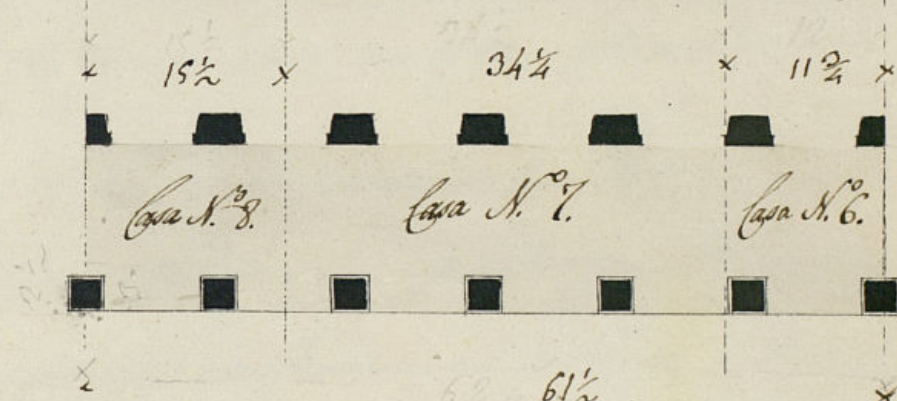 15½ 34¼ 11¾
Casa N.º 8. Casa N.º 7. Casa N.º 6.
61½